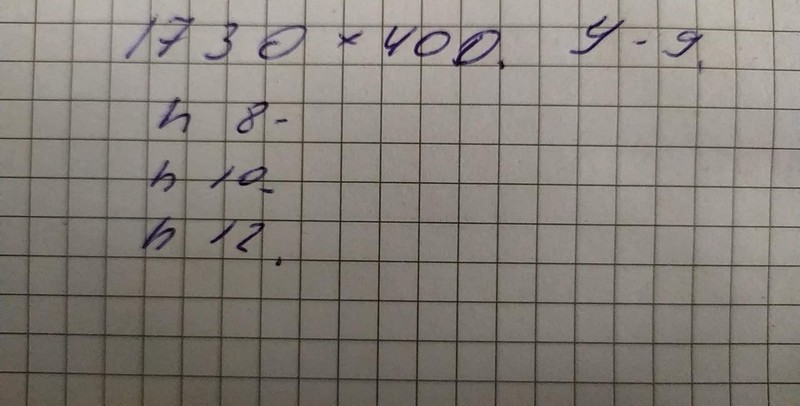 1730 × 400. У - 9.
h 8-
h 10-
h 12.